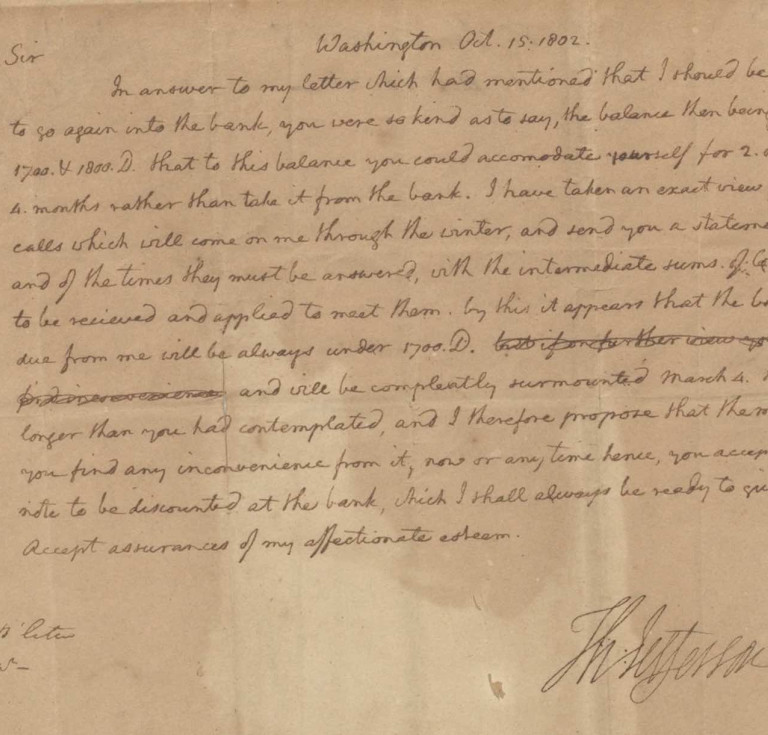 Washington Oct. 15. 1802.
Sir
In answer to my letter which had mentioned that I should be
to go again into the bank, you were so kind as to say, the balance then being
1700. & 1800. D. that to this balance you could accomodate yourself for 2. 
4. months rather than take it from the bank. I have taken an exact view
calls which will come on me through the winter, and send you a stateme
and of the times they must be answered, with the intermediate sums.
to be recieved and applied to meet them. by this it appears that the ba
due from me will be always under 1700. D. but if on further view yo
find inconvenience and will be compleatly surmounted March 4.
longer than you had contemplated, and I therefore propose that
you find any inconvenience from it, now or any time hence, you accep
note to be discounted at the bank, which I shall always be ready to giv
Accept assurances of my affectionate esteem.
Th: Jefferson